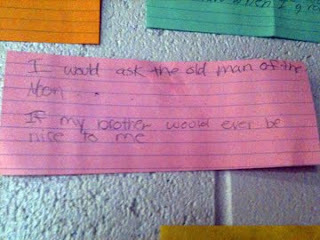 when I gro
I would ask the old man of the
Mon ..
If my brother would ever be
nice to me